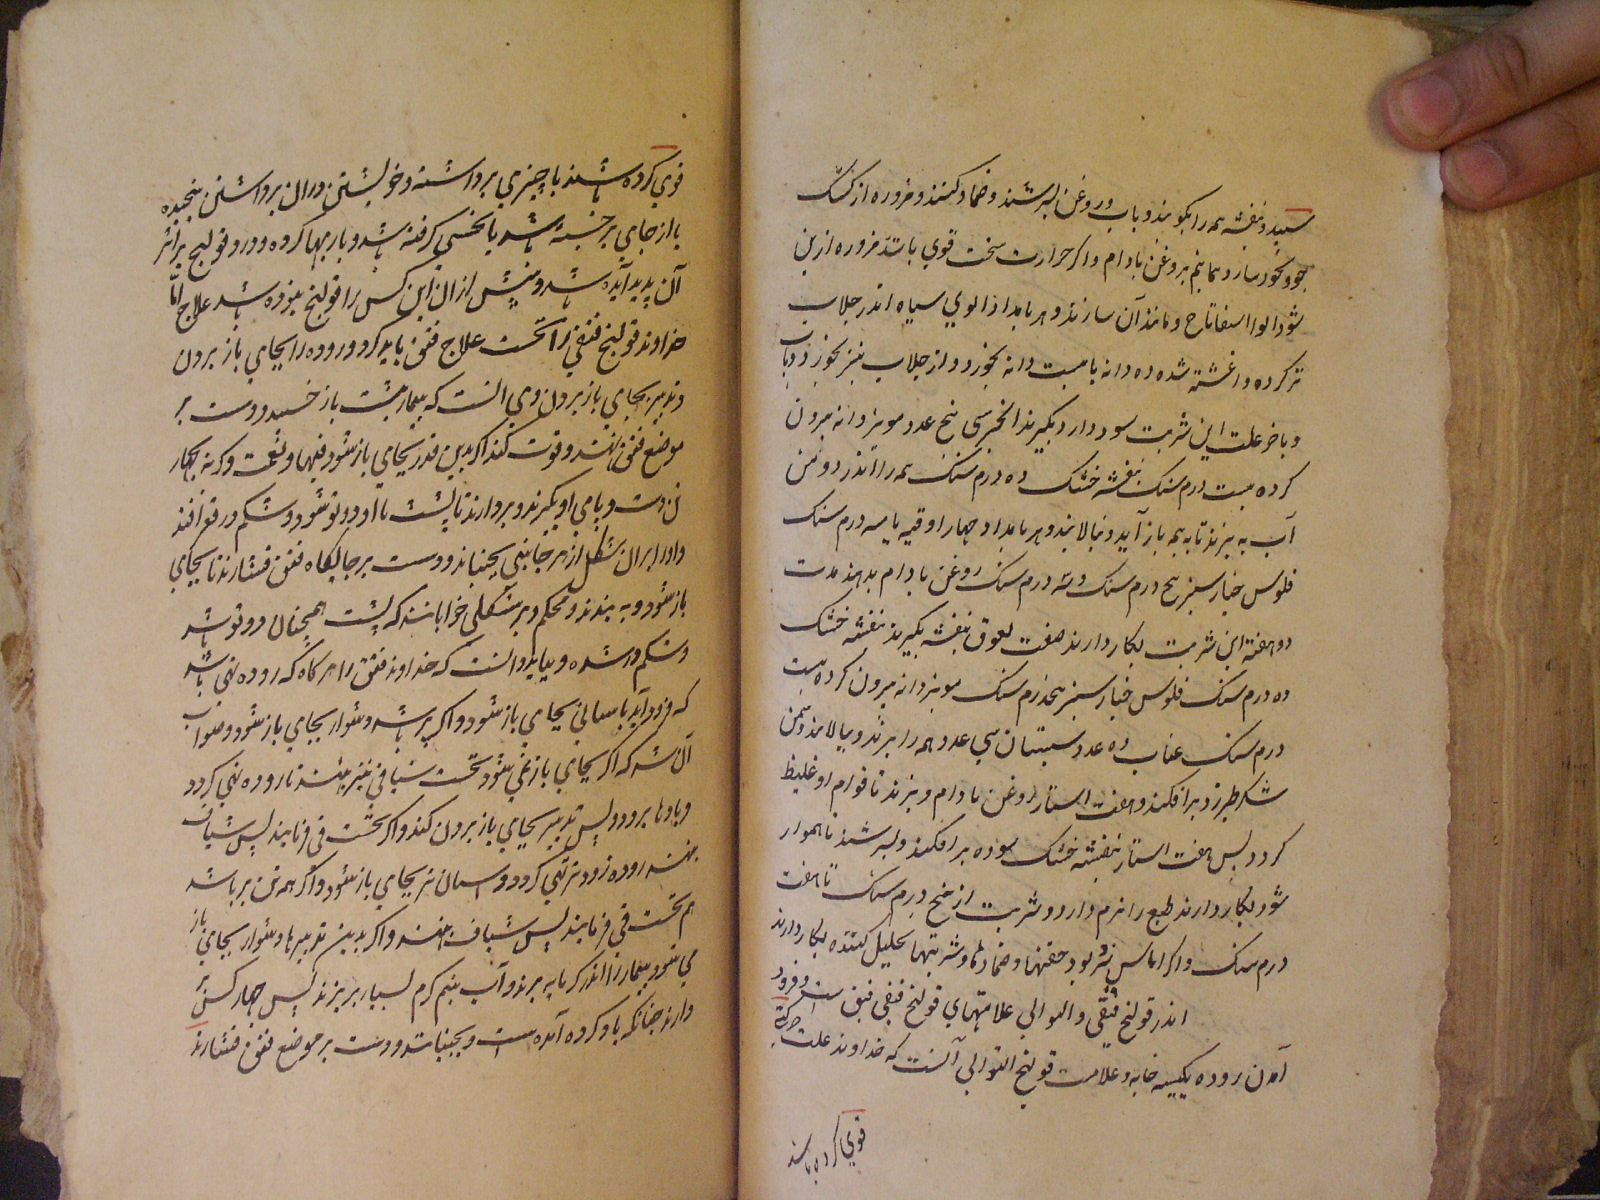 سپید و بنفشه همه را بکوبند و باب و روغن بسرشند و ضماد کنند و مزوره از کشک
جو و نخود سازد و با نیم بروغن بادام و اگر حرارت سخت قوی باشد مزوره ازین
شود الو اسفاناخ و مانند آن سازند و هر بامداد الوی سیاه اندر جلاب
تر کرده و اغشته شده ده دانه یا بیست دانه بخورد و از جلاب نیز بخورد
و باخر علت این شربت سود دارد بکیرند انجیر سی پنج عدد مویز دانه بیرون
کرده بیست درم سنک بنفشه خشک ده درم سنک همه را اندر دو من
آب به پزند تا به نیم باز آید و بپالایند و هر بامداد چهار اوقیه با سه درم سنک
فلوس خیارشنبر پنج درم سنک و سه درم سنک روغن بادام بدهند مدت
دو هفته این شربت بکار دارند صفت لعوق بنفشه بکیرند بنفشه خشک
ده درم سنک فلوس خیارشنبر پنجدرم سنک مویز دانه بیرون کرده بیست
درم سنک عناب ده عدد سپستان سی عدد همه را بپزند و بپالایند و من
شکر طبرزد برافکنند و هفت استار روغن بادام و بپزند تا قوام او غلیظ
کردد پس هفت استار بنفشه خشک سوده برافکنند و بسرشند تا هموار
شود بکار دارند طبع را نرم دارد و شربت از پنج درم سنک تا هفت
درم سنک و اکر اماس بود حقنها و ضمادها و شربتهای تحلیل کننده بکار دارند
اندر قولنج فتقی و التوالی علامتهای قولنج فتقی فتق است و فرود
آمدن روده بکیسه خایه و علامت قولنج التوالی آنست که خداوند علت حرکتی
قوی کرده باشد
قوی کرده باشد یا چیزی برداشته و خویشتن در ان برداشتن پیچیده
یا از جای برجسته باشد یا کشتی کرفته باشد و بار بها کرده و درد قولنج بر اثر
آن پدید آیده باشد و پیش از ان این کس را قولنج نبوده باشد علاج اما
خداوند قولنج فتقی را نخست علاج فتق باید کرد و روده را بجای باز بردن
و تدبیر بجای باز بردن وی انست که بیمار بپشت باز خسبد و دست بر
موضع فتق نهند و قوت کند اکر بدین قدر بجای باز شود فبها و نعمت و کر نه چهار
تن دست و پای او بکیرند و بردارند تا پشت او دو تو شود و شکم در قعر افتد
و او را بران شکل از هر جانبی بجنبانند و دست بر جایکاه فتق فشارند تا بجای
باز شود و به بندند و محکم و بر شکلی خوابانند که پشت همچنان دو تو باشد
و شکم در شده و بباید دانست که خداوند فتق را هر کاه که روده تهی باشد
که فرود آید باسانی بجای باز شود و اکر پر باشد دشوار بجای باز شود و صواب
آن باشد که اکر بجای باز نمی شود نخست شیافی تیز بنهند تا روده تهی کردد
و بادها برود پس تدبیر بجای باز بردن کنند و اکر نخست قی فرمایند پس شیاف
بنهند روده زودتر تهی کردد و اسان تر بجای باز شود و اکر همه تن پر باشد
هم نخست قی فرمایند پس شیاف بنهند و اکر بدین تدبیرها دشوار بجای باز
می شود بیمار را اندر کرمابه برند و آب نیم کرم بسیار بریزند پس چهار کس بر
دارند چنانکه یاد کرده آمده است و بجنبانند و دست بر موضع فتق فشارند